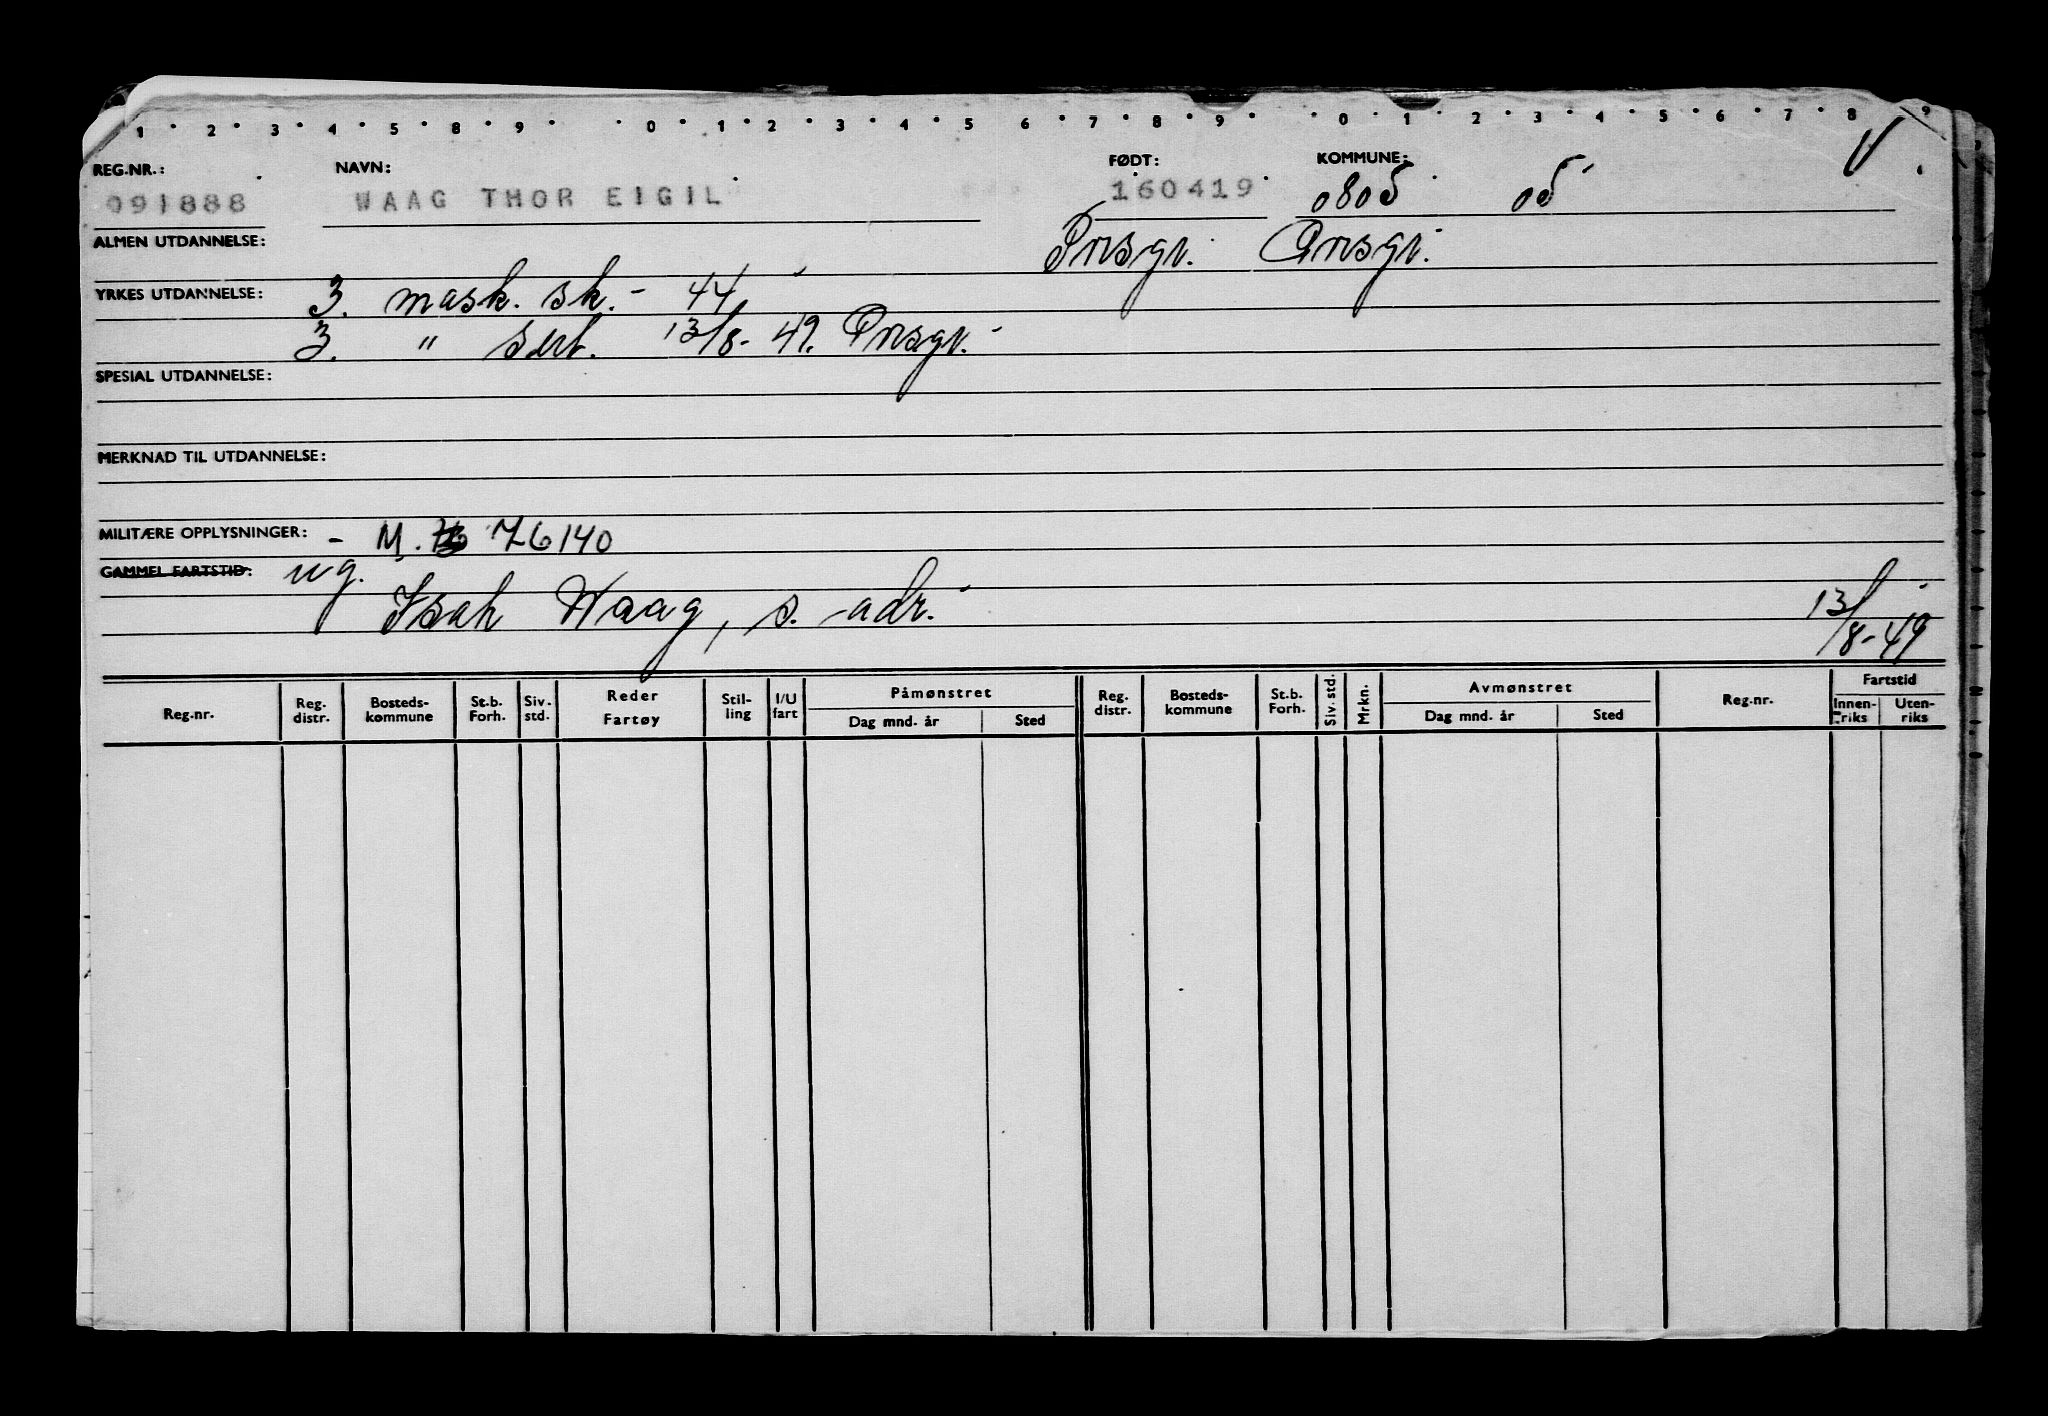 1 · 2 · 3 · 4 · 5 · 8 · 9 · 0 · 1 · 2 · 3 · 4 · 5 6 · 7 · 8 · 9 · 0 · 1 · 2 · 3 · 4 · 5 · 6 · 7 · 8 · 9
REG.NR.: NAVN: FØDT: KOMMUNE:
091888 WAAG THOR EIGIL 160419 0805 05
ALMEN UTDANNELSE: Prsgr. Prsgr.
YRKES UTDANNELSE: 3. mask. sk. - 44
3. " sert. 13/8-49. Prsgr.
SPESIAL UTDANNELSE:
MERKNAD TIL UTDANNELSE:
MILITÆRE OPPLYSNINGER: - M. 76140
GAMMEL FARTSTID: ug.
Isak Waag, s. adr. 13/8-49
Reg.nr. Reg. distr. Bosteds-kommune St.b. Forh. Siv. std. Reder Fartøy Stil-ling I/U fart Påmønstret Dag mnd. år Sted Reg. distr. Bosteds-kommune St.b. Forh. Siv. std. Mrkn. Avmønstret Dag mnd. år Sted Reg.nr. Fartstid Innen-riks Uten-riks